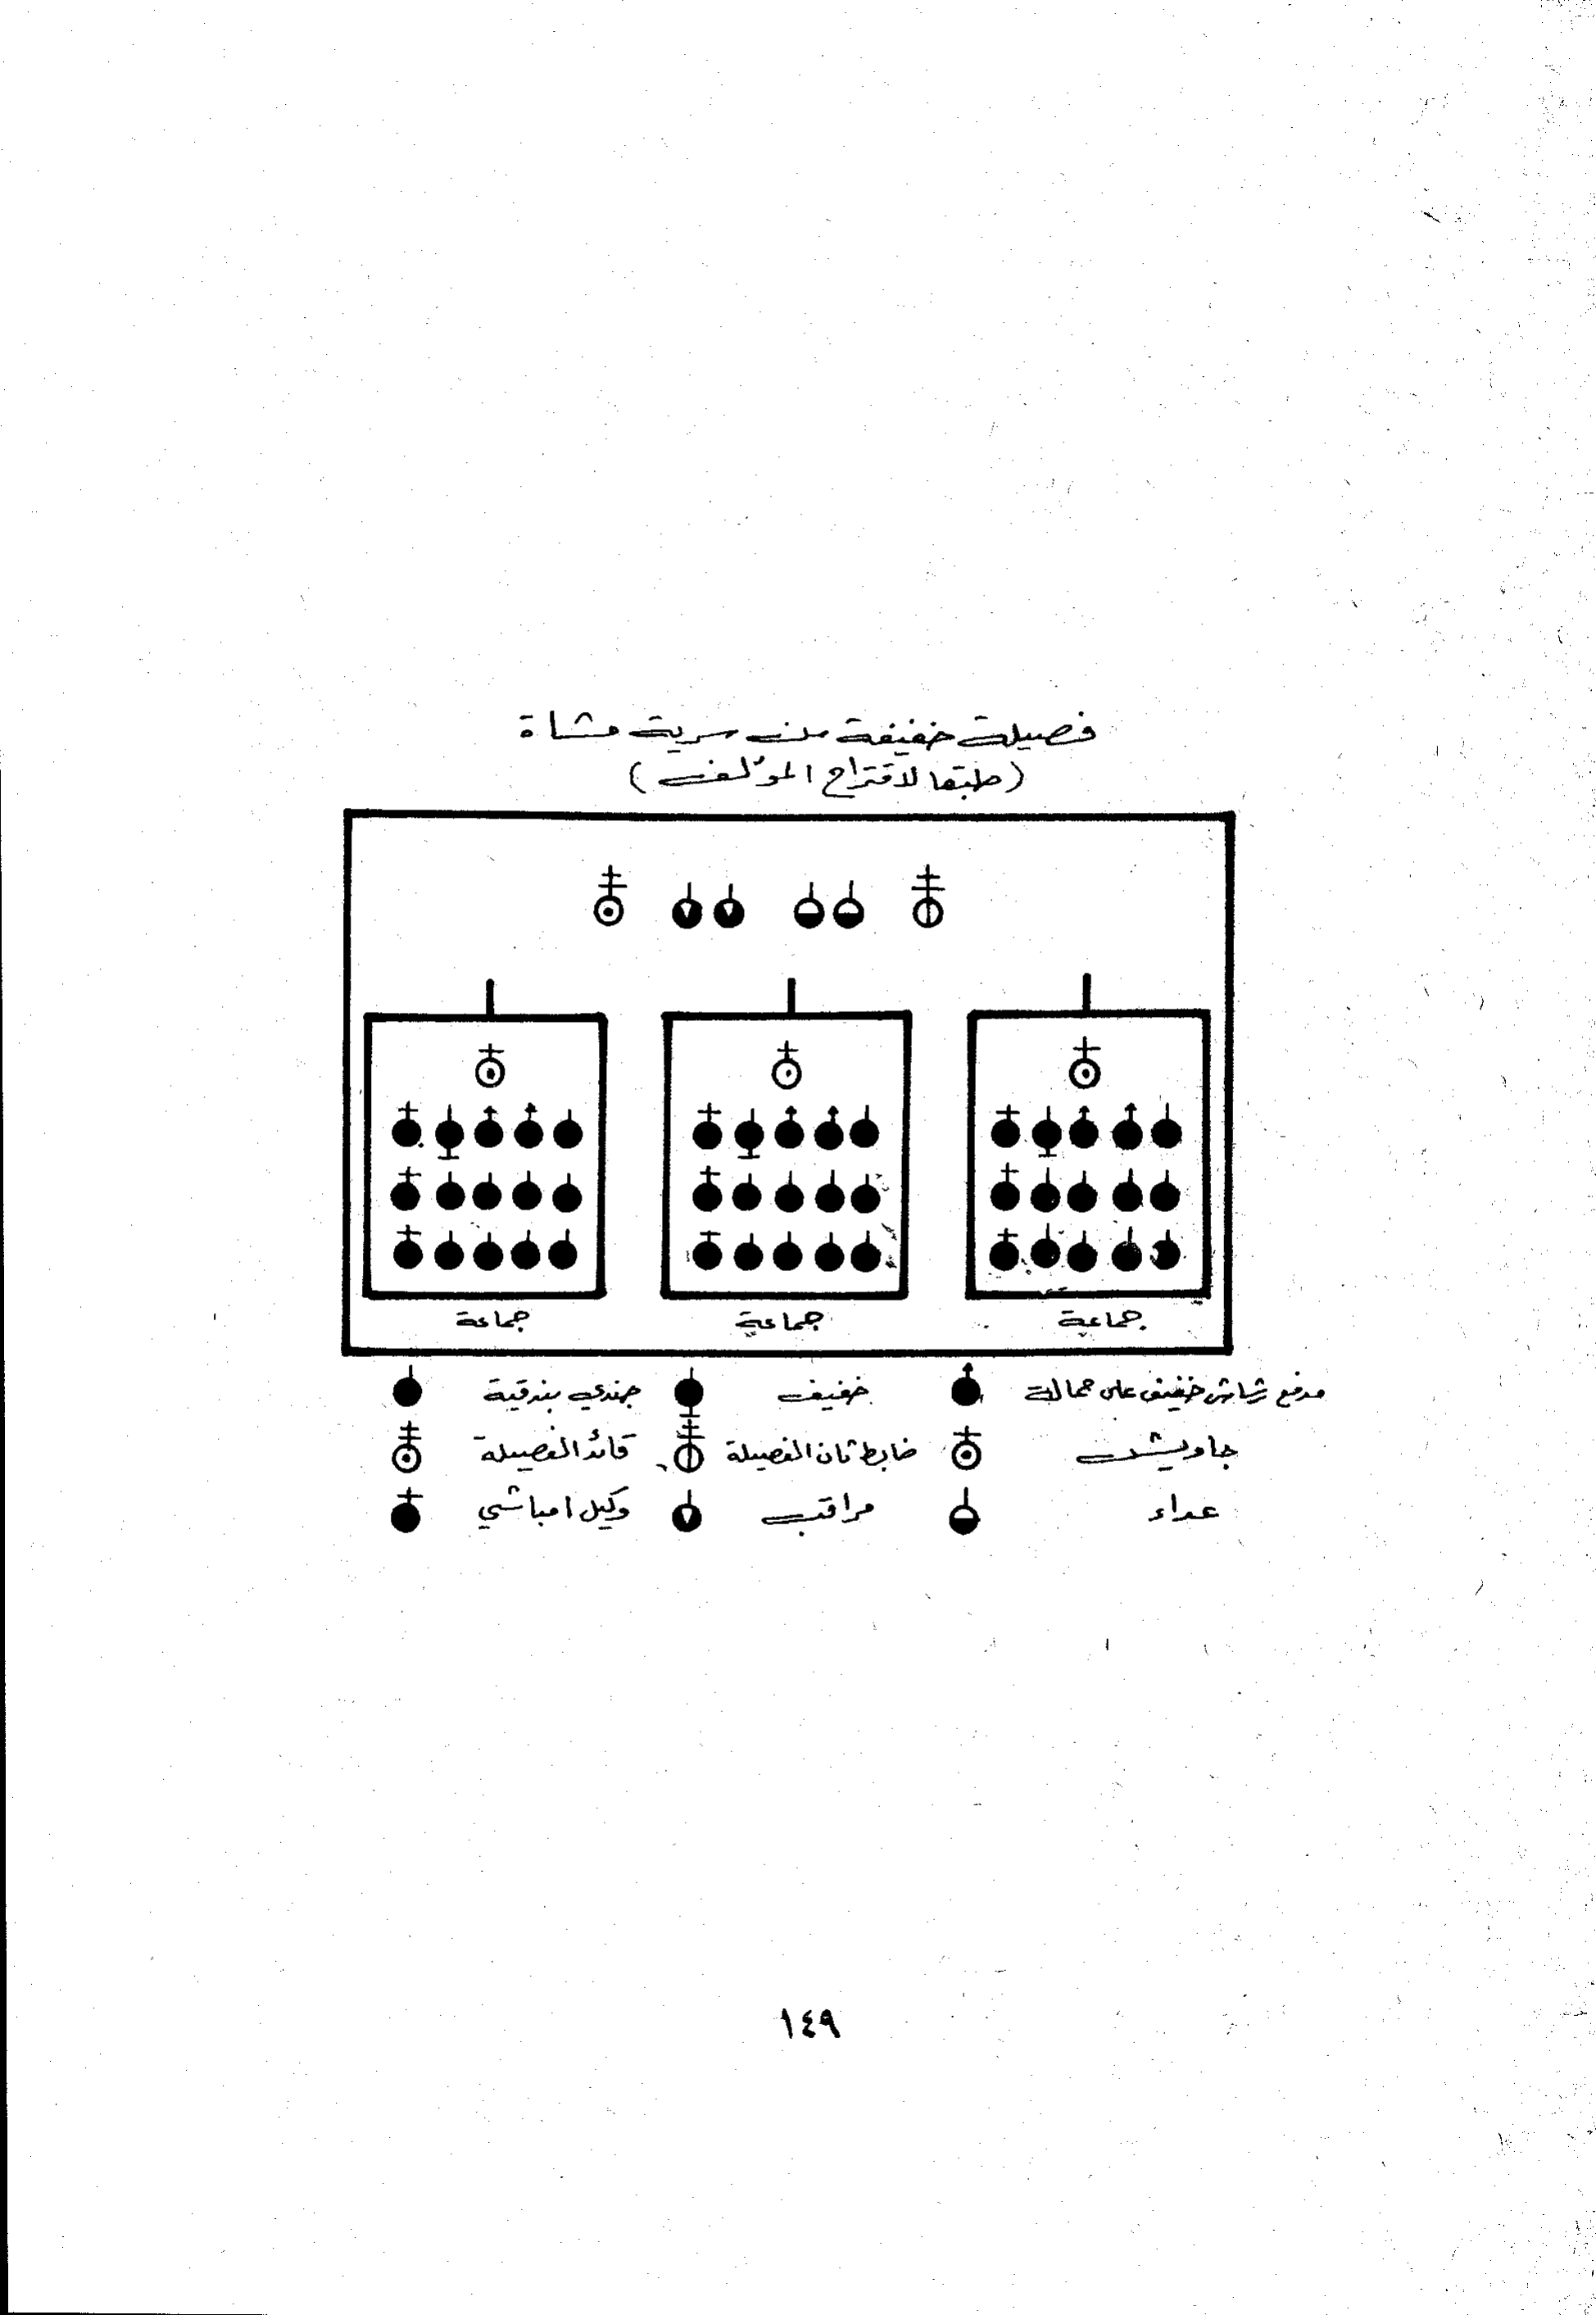 فصيلة خفيفة من سرية مشاة
(طبقا لاقتراح المؤلف)
جماعة جماعة جماعة
مدفع رشاش خفيف على حمالة خفيف جندي بندقية
جاويش ضابط ثان الفصيلة قائد الفصيلة
عداء مراقب وكيل امباشي
١٤٩